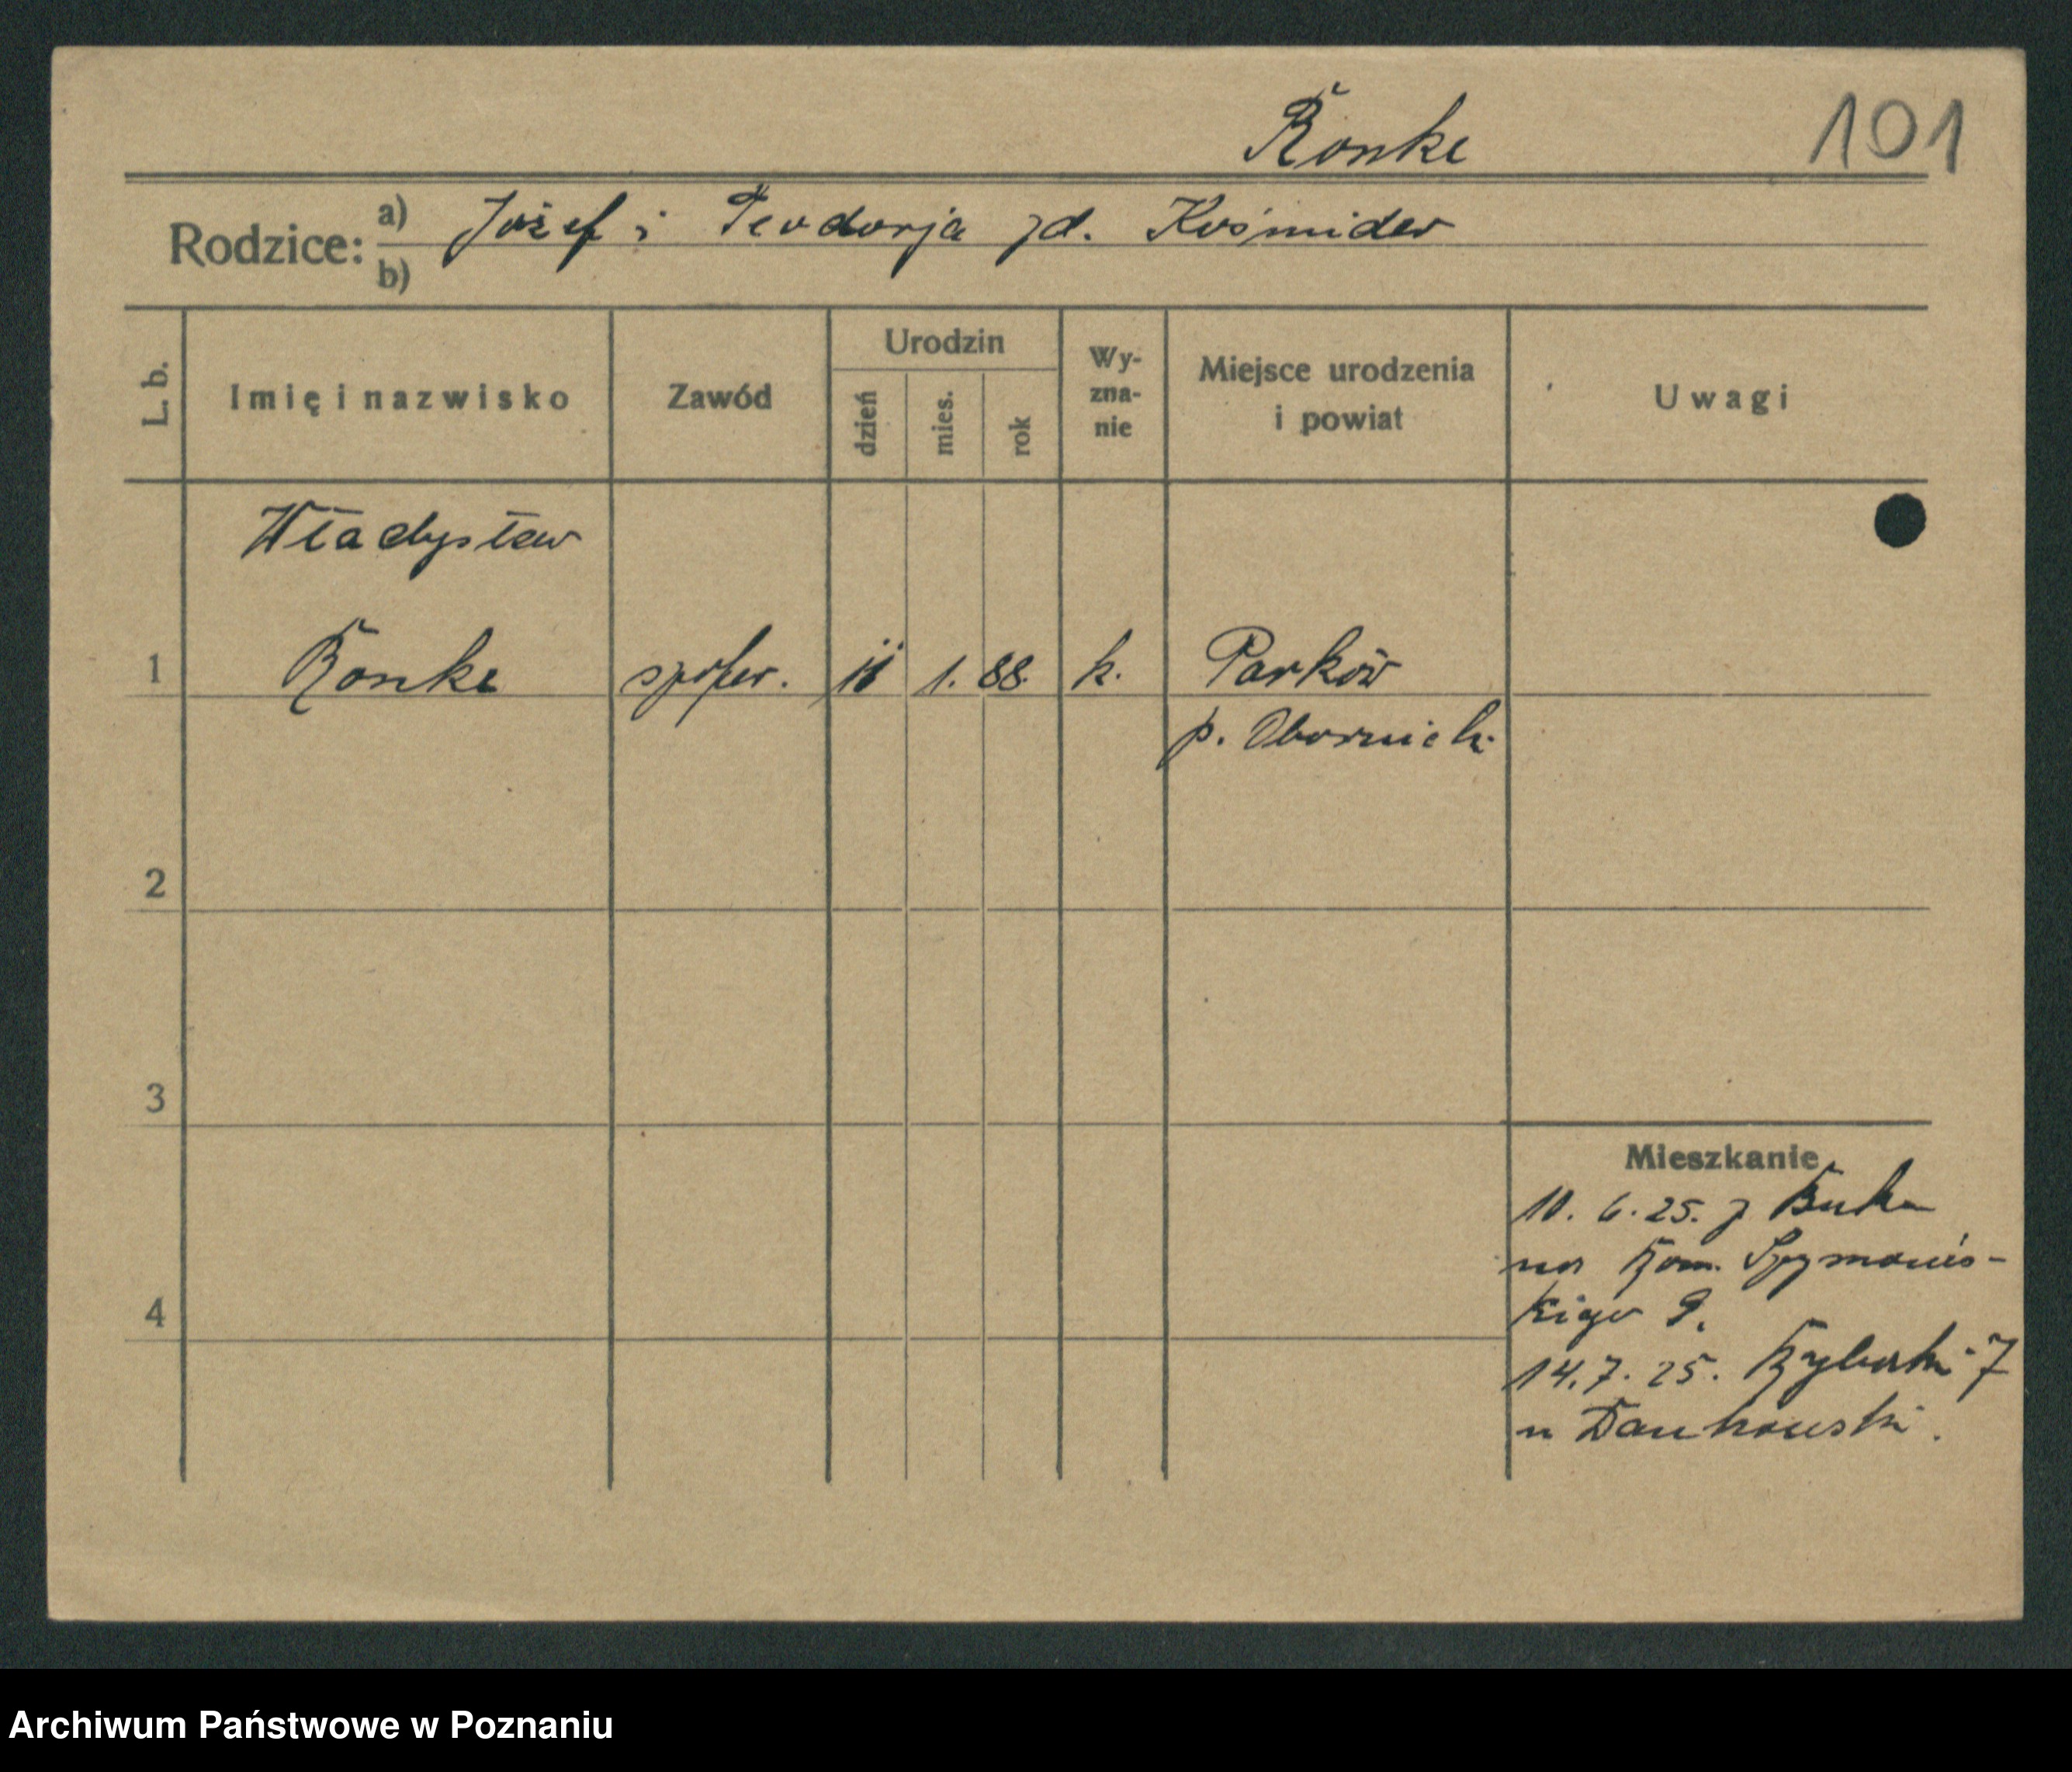 Ronke
101
Rodzice: a) Józef i Teodorja zd. Kośmider
b)
L. b.
Imię i nazwisko
Zawód
Urodzin
dzień
mies.
rok
Wy-
zna-
nie
Miejsce urodzenia
i powiat
Uwagi
Władysław
1 Ronke szofer. 11 1. 88. k. Parków
p. Obornicki
2
3
4
Mieszkanie
10. 6. 25. z Buku
na Rom. Szymańs-
kiego 9.
14. 7. 25. Rybaki 7
u Dankowski.
Archiwum Państwowe w Poznaniu